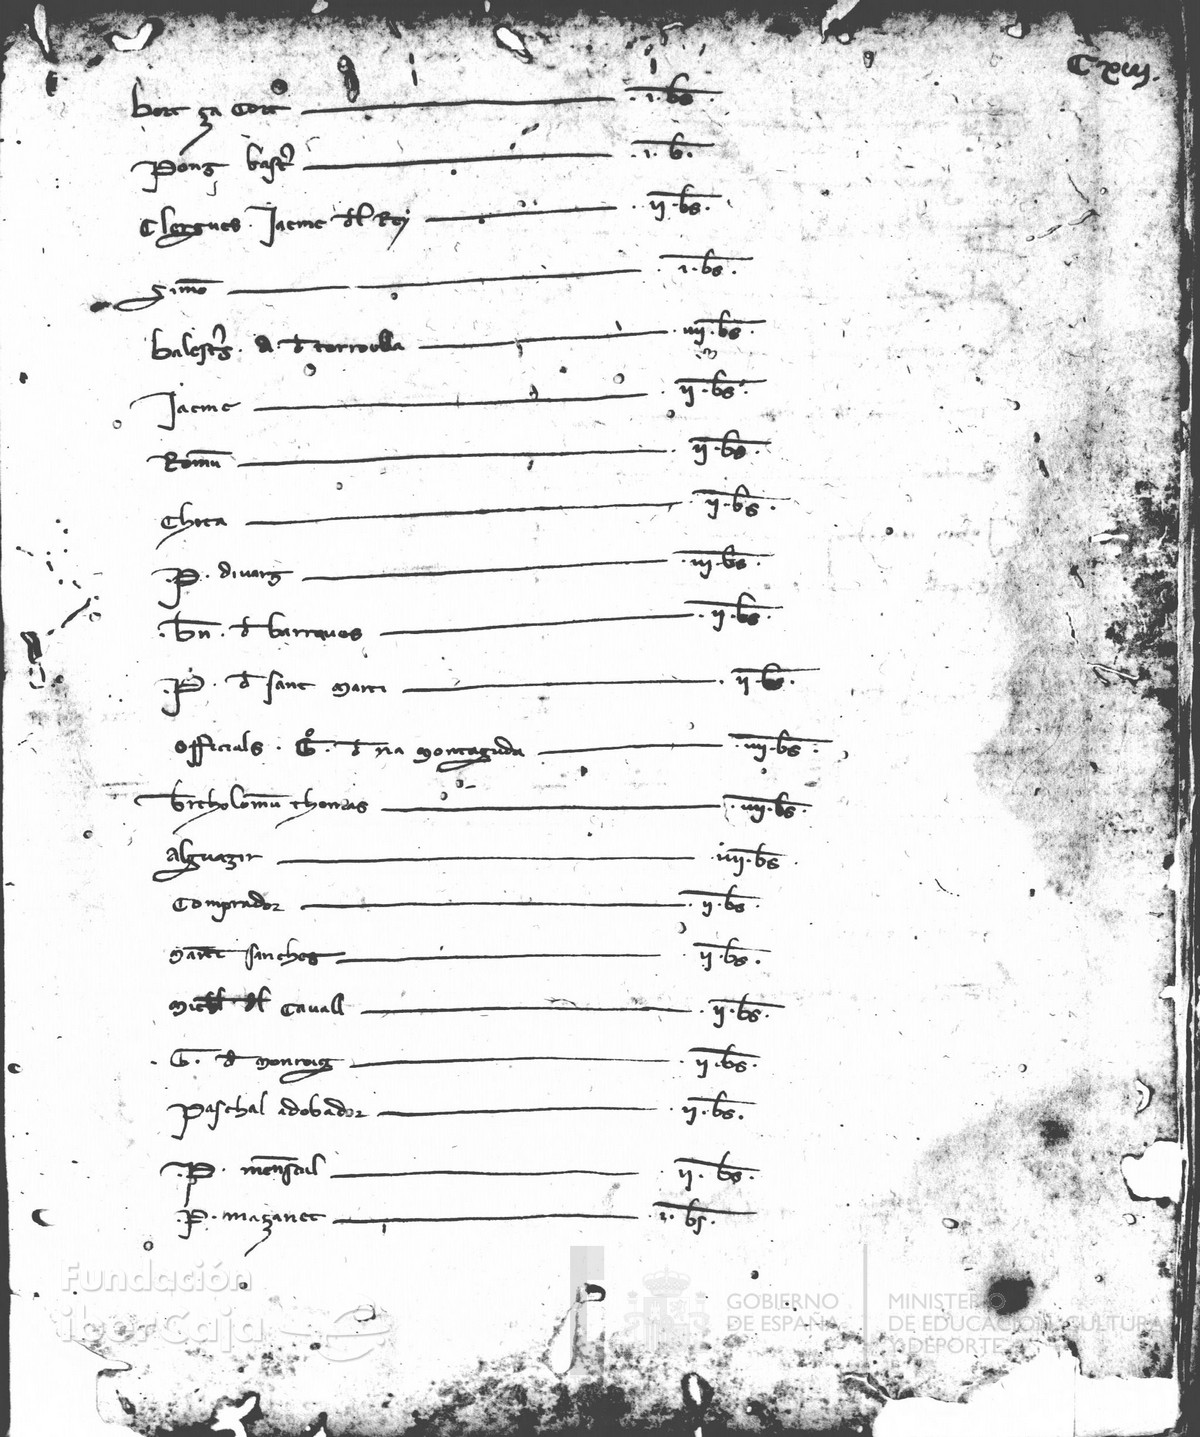 C xiii.
bort ça Cort .i. bs.
Ponç bast .i. b.
Clergues. Jacme del Rey .ij. bs.
Simo .i. bs.
balests. A. d torroella .iiij. bs.
Jacme .ij. bs.
Romu .ij. bs.
Checa .ij. bs.
.P. divarç .iij. bs.
.bn. d barraques .ij. bs.
.P. d sant marti .ij. bs.
officials. G. d na montaguda .iiij. bs.
brtholomeu thomas .iiij. bs.
alguazir .iiij. bs.
Comprador .ij. bs.
Martt sanches .ij. bs.
Cavall .ij. bs.
.G. d monroig .ij. bs.
Paschal adobador .ij. bs.
.P. .ij. bs.
.P. maçanet .i. bs.
Fundación
iberCaja
GOBIERNO
DE ESPAÑA
MINISTERIO
DE EDUCACIÓN, CULTURA
Y DEPORTE